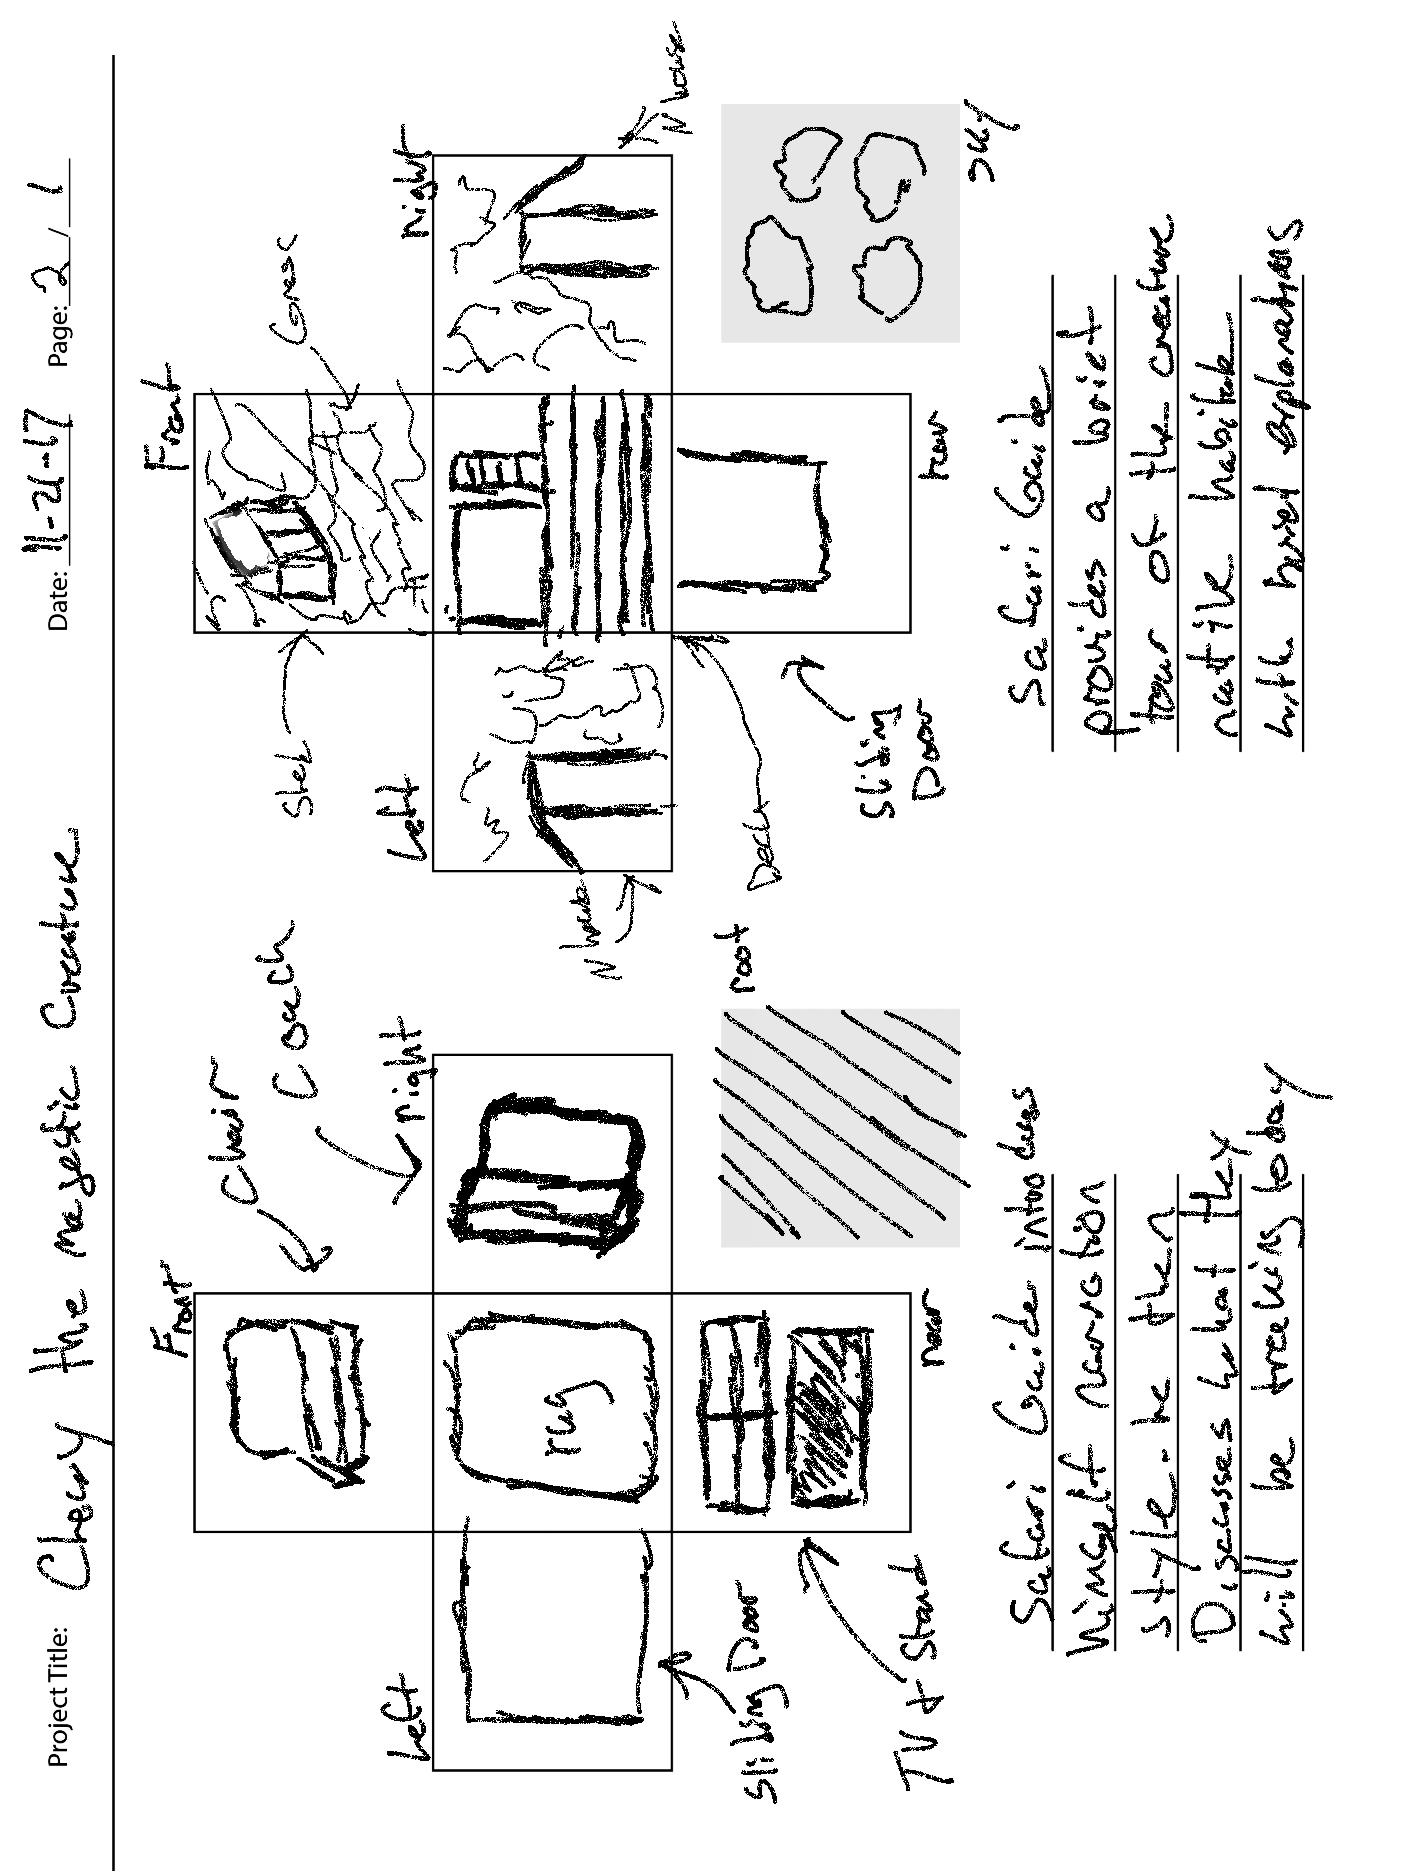 Project Title: Chewy the majestic Creature Date: 11-21-17 Page: 2 / 1
Front
Chair
Couch
Left
right
rug
Sliding Door
TV + Stand
rear
roof
Safari Guide introduces
himself narration
style. he then
Discusses what they
will be tracking today
Front
Shed
Left
Right
N house
N house
Deck
Sliding
Door
rear
sky
Safari Guide
provides a brief
tour of the creature
native habitat
with brief explanations